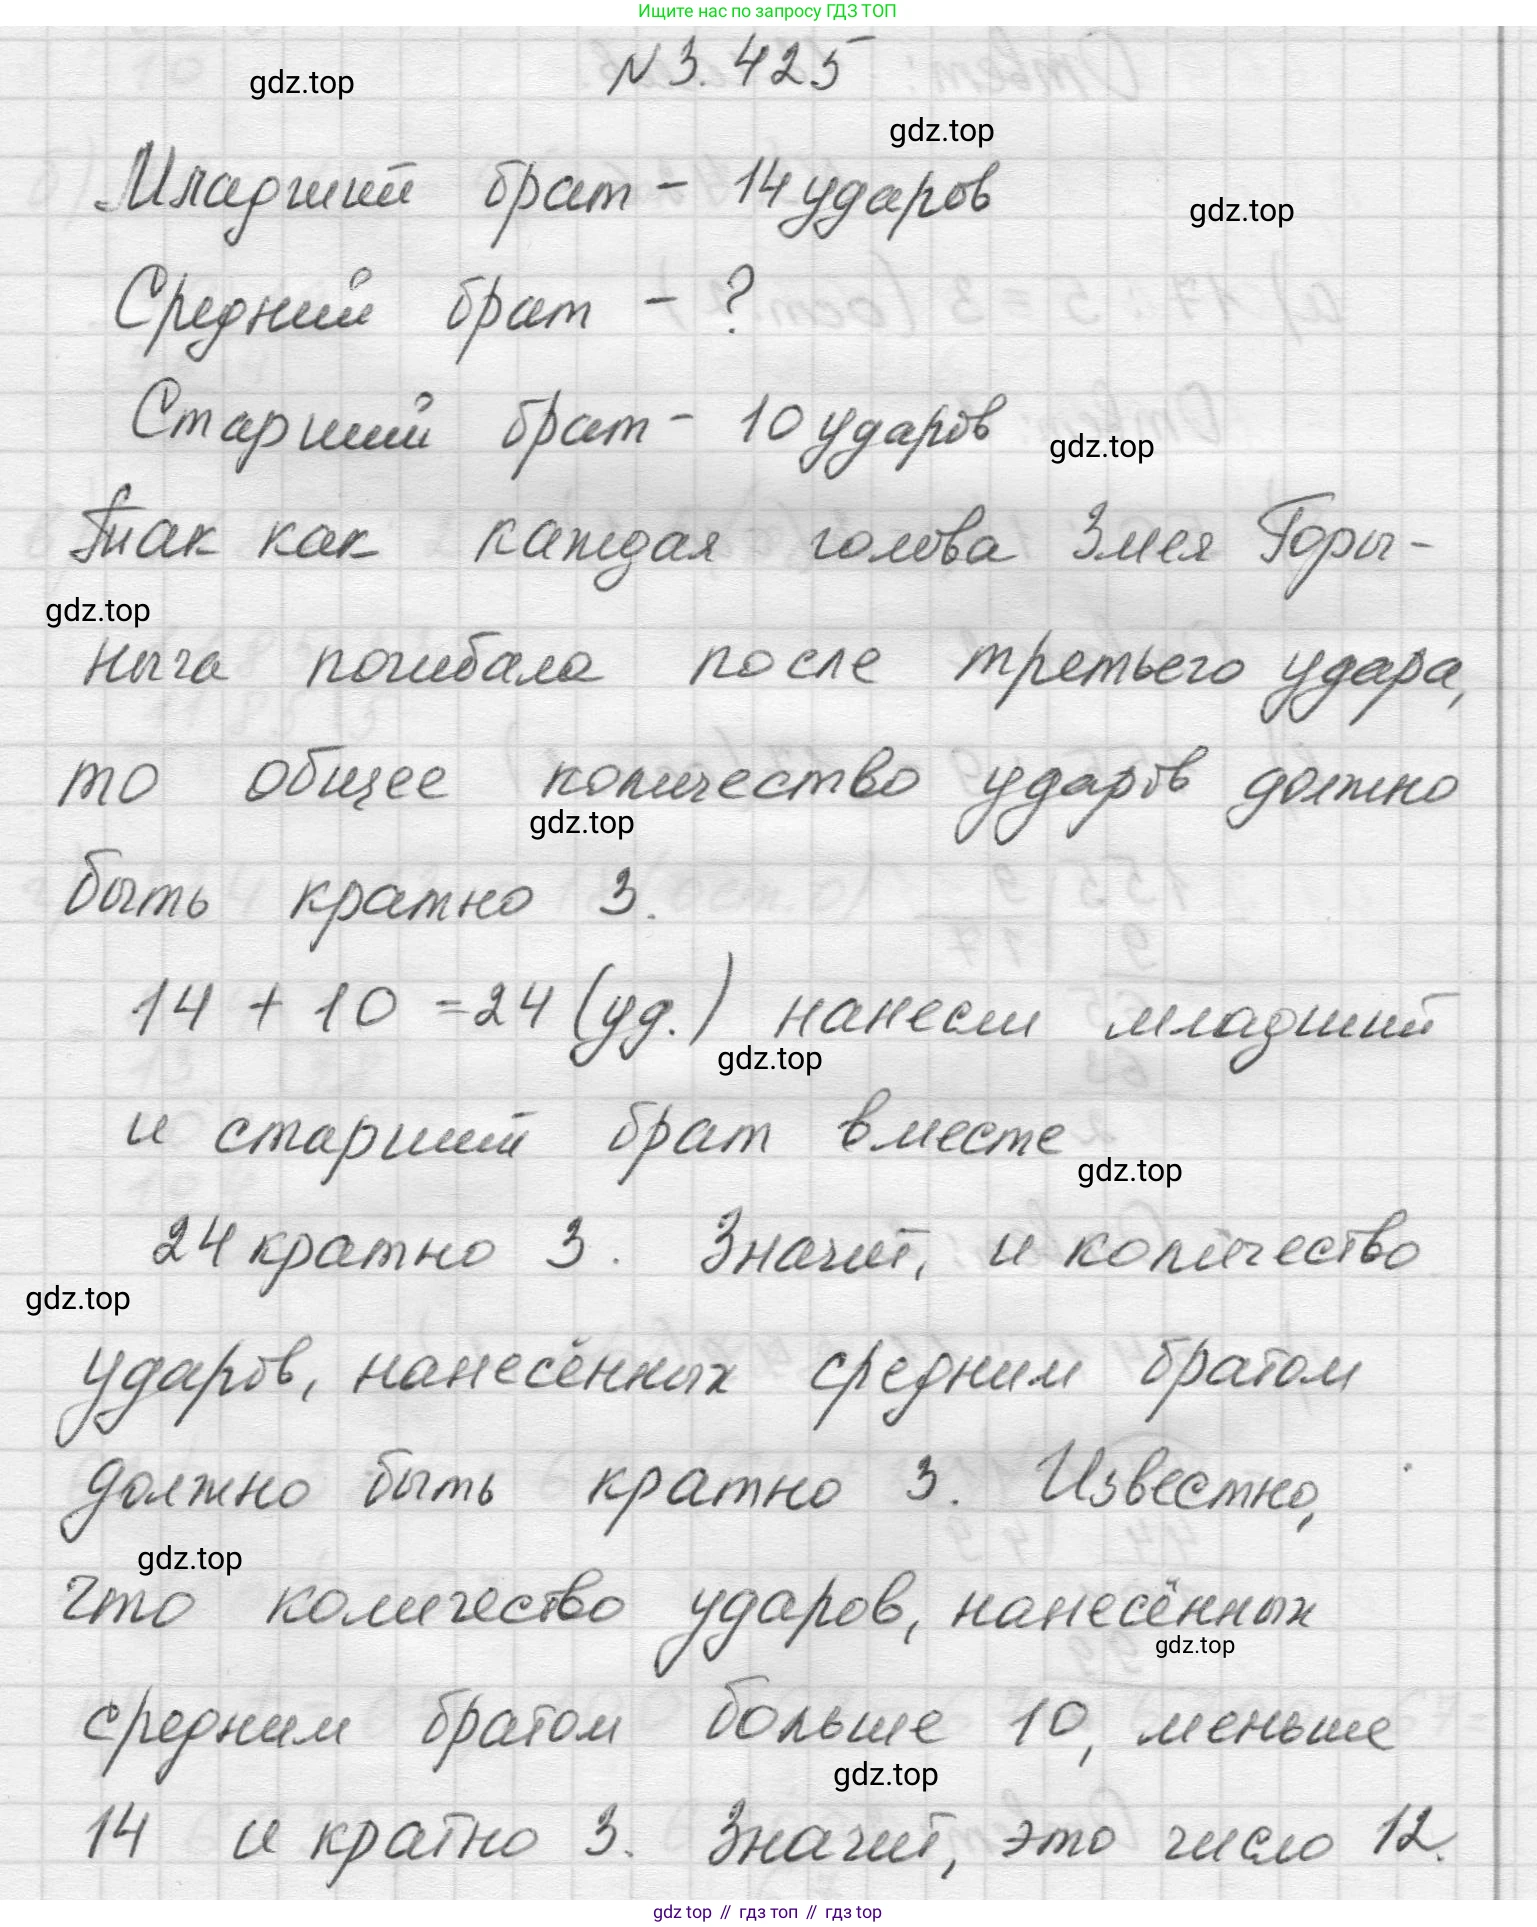 Ищите нас по запросу ГДЗ ТОП
N 3.425
gdz.top
gdz.top
Младший брат - 14 ударов
gdz.top
Средний брат - ?
Старший брат - 10 ударов
gdz.top
Так как каждая голова Змея Горы-
gdz.top
ныча погибала после третьего удара,
то общее количество ударов должно
gdz.top
быть кратно 3.
14 + 10 = 24 (уд.) нанесли младший
gdz.top
и старший брат вместе
gdz.top
24 кратно 3. Значит, и количество
gdz.top
ударов, нанесённых средним братом
должно быть кратно 3. Известно,
gdz.top
что количество ударов, нанесённых
gdz.top
средним братом больше 10, меньше
gdz.top
14 и кратно 3. Значит, это число 12.
gdz top // гдз топ // гдз top